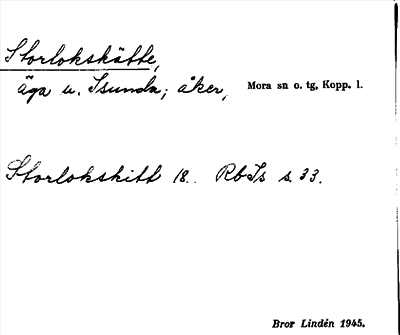 Storlokskätte,
äga u. Isunda; åker, Mora sn o. tg, Kopp. l.
Storlokskitt 18. RbIs s. 33.
Bror Lindén 1945.